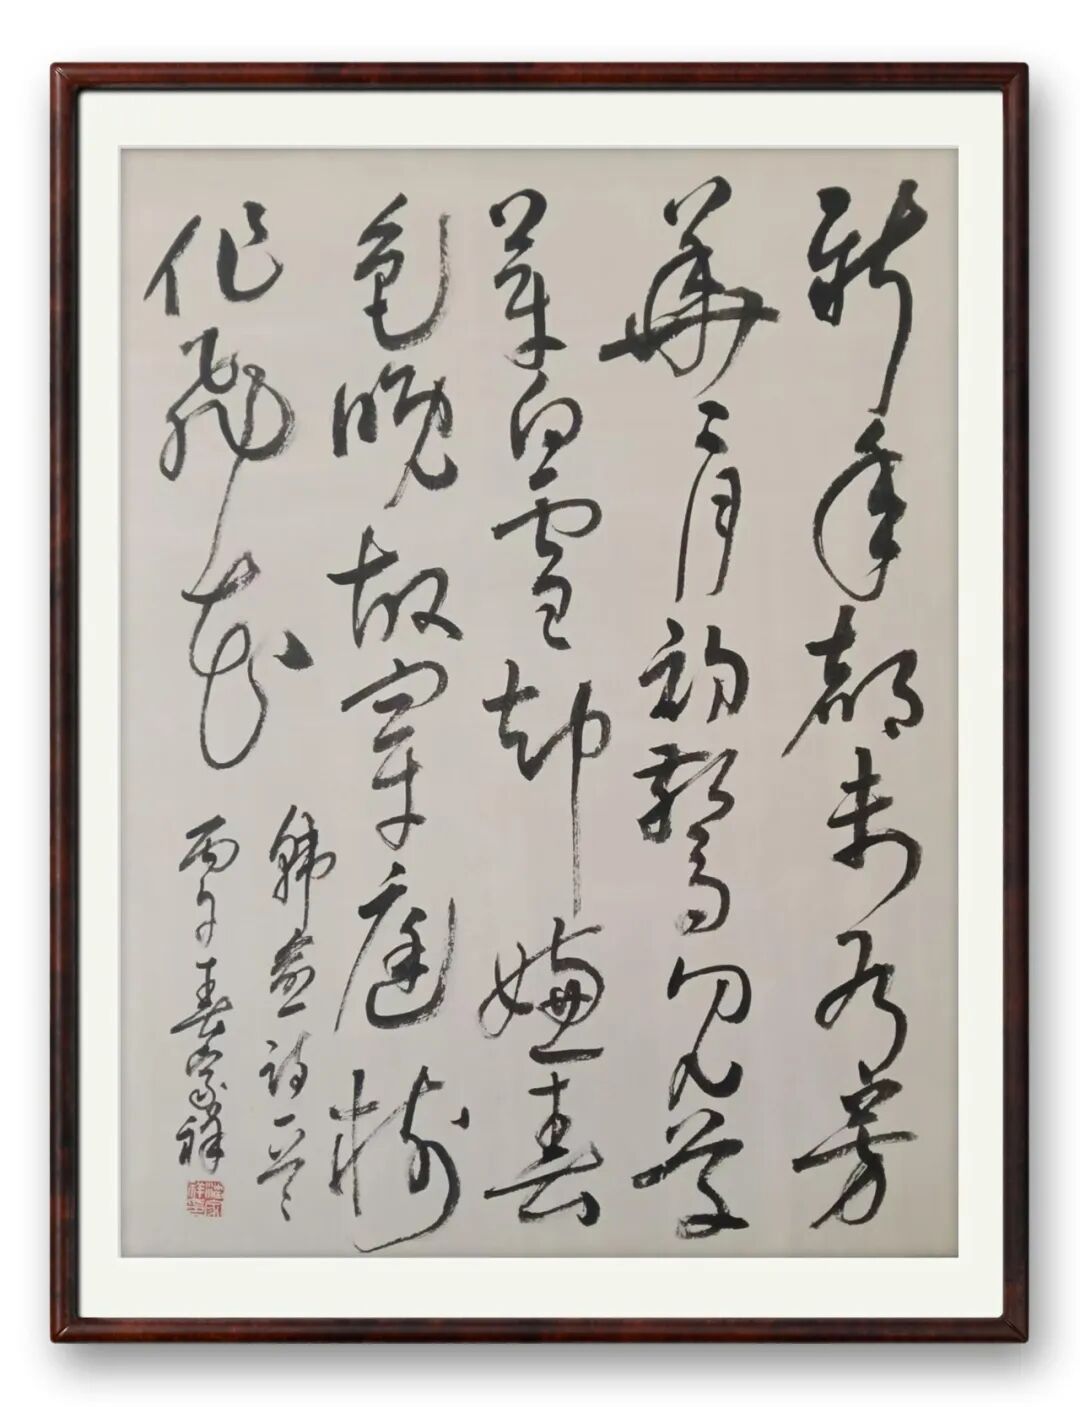 新年都未有芳
華二月初驚見草
芽白雪却嫌春
色晚故穿庭樹
作飛花
韓愈詩一首
丙午春家祥